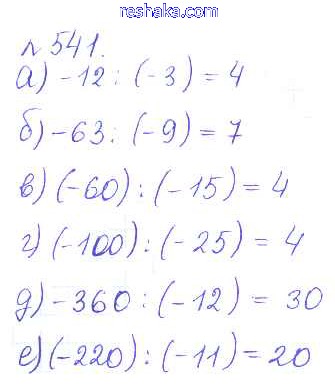 reshaka.com
№541.
а) -12 : (-3) = 4
б) -63 : (-9) = 7
в) (-60) : (-15) = 4
г) (-100) : (-25) = 4
д) -360 : (-12) = 30
е) (-220) : (-11) = 20